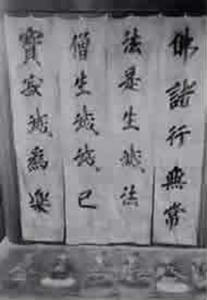 佛諸行無常
法是生滅法
僧生滅滅已
寶寂滅為樂